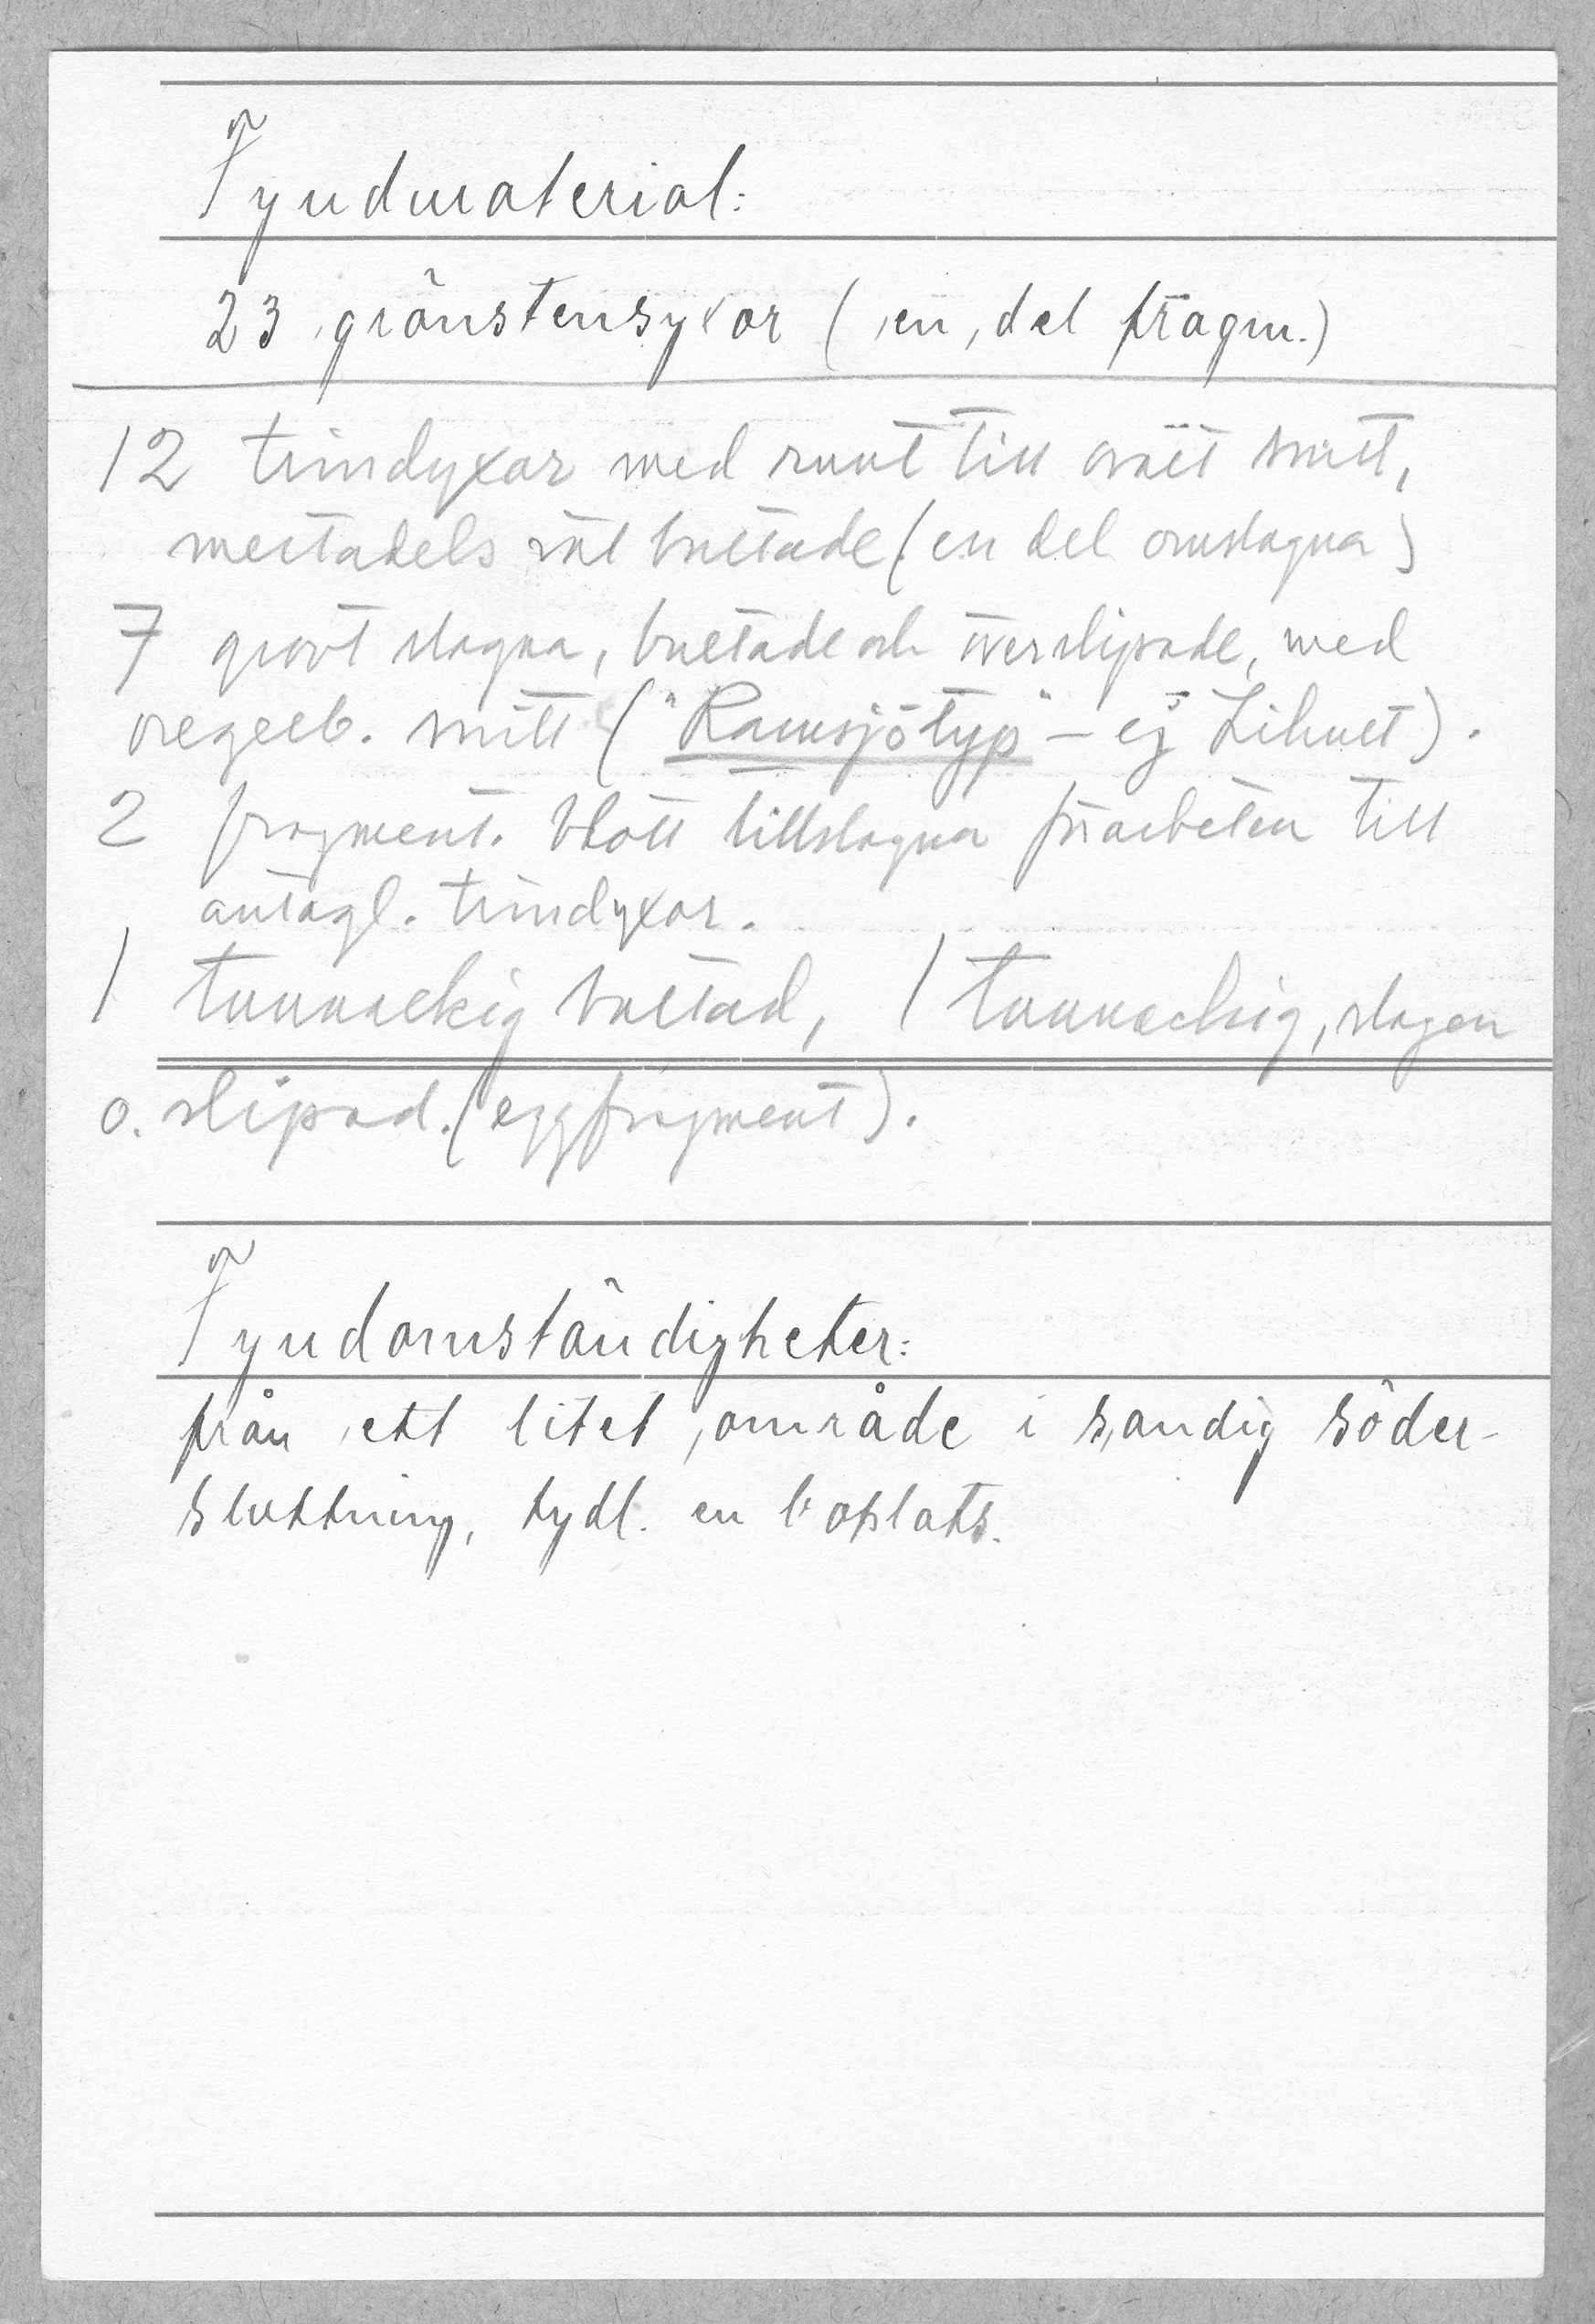 Fyndmaterial:
23 grönstensyxor (en del fragm.)
12 trindyxor med runt till ovalt snitt,
mestadels rät bultade (en del omslagna)
7 grovt slagna, bultade och överslipade, med
oregelb. snitt ("Ramsjötyp" – ej Lihult).
2 fragment. Blott tillslagna förarbeten till
antagl. trindyxor.
1 tunnackig bultad, 1 tunnackig, slagen
o. slipad. (eggfragment).
Fyndomständigheter:
från ett litet område i sandig söder-
sluttning, tydl. en boplats.